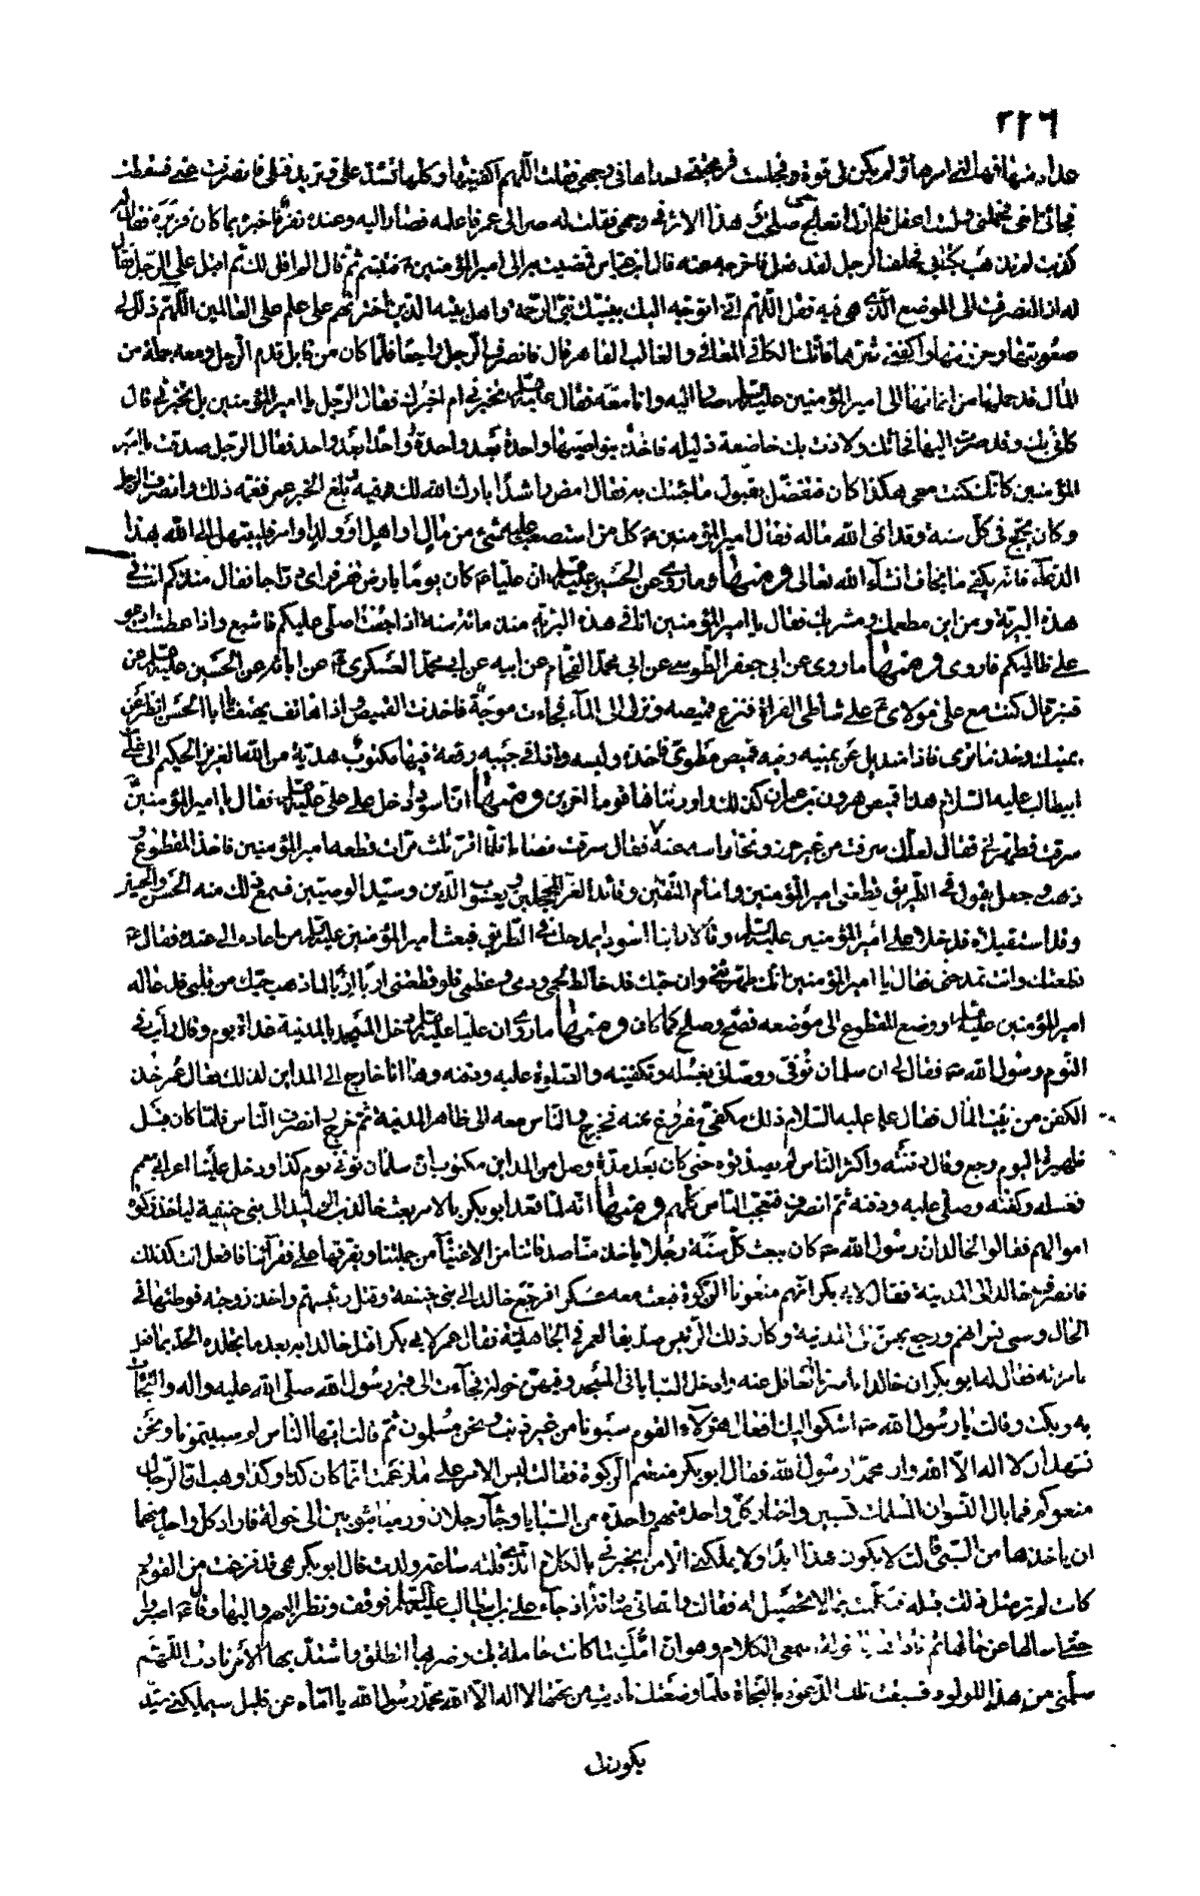 ٢٢٦
عداد منها فهالني امرها ولم يكن لي قوة فجلست فرمحتني احداها في وجهي فقلت اللهم اكفنيها وكلها تشد علي وتريد قتلي فانصرفت عني فسقطت
فجاء اخي فحملني ولست اعقل فلم ازل اتعالج حتى صلحت هذا الاثر في وجهي فقلت له صر الى عمر فاعلمه فصار اليه وعنده نفر فاخبره بما كان فزبره فقال له
كذبت لم تذهب بكتابي فحلف الرجل لقد فعل فاخرجه عنه قال ابن عباس فمضيت به الى امير المؤمنين ع فتبسم ثم قال الم اقل لك ثم اقبل على الرجل فقال
له اذا انصرفت الى الموضع الذي هي فيه فقل اللهم اني اتوجه اليك بنبيك نبي الرحمة واهل بيته الذين اخترتهم على علم على العالمين اللهم ذلل لي
صعوبتها وحزنتها واكفني شرها فانك الكافي المعافي والغالب القاهر قال فانصرف الرجل راجعا فلما كان من قابل قدم الرجل ومعه جملة من
المال قد حملها من اثمانها الى امير المؤمنين عليه السلم فصار اليه وانا معه فقال عليه السلم تخبرني ام اخبرك فقال الرجل يا امير المؤمنين بل تخبرني قال
كاني بك وقد صرت اليها فجائتك ولاذت بك خاضعة ذليله فاخذت بنواصيها واحدة بعد واحدة واحدا بعد واحد فقال الرجل صدقت يا امير
المؤمنين كانك كنت معي هكذا كان فتفضل بقبول ما جئتك به فقال امض راشدا بارك الله لك فيه وبلغ الخبر عمر فغمه ذلك وانصرف الرجل
وكان يحج في كل سنة وقد انمى الله ماله فقال امير المؤمنين ع كل من استصعب عليه شئ من مال او اهل او ولد او امر فليبتهل الى الله بهذا
الدعاء فانه يكفي ما يخاف انشاء الله تعالى ومنها وما روي عن الحسين عليه السلم ان عليا ع كان يوما بارض قفر فراى دراجا فقال منذ كم انت في
هذه البرية ومن اين مطعمك ومشربك فقال يا امير المؤمنين انا في هذه البرية منذ مائة سنة اذا جعت اصلي عليكم فاشبع واذا عطشت ادعو
على ظالميكم فاروى ومنها ما روى عن ابي جعفر الطوسي عن ابي محمد الفحام عن ابيه عن ابي محمد العسكري ع عن ابائه عن الحسين عليه السلم عن
قنبر قال كنت مع علي مولاي ع على شاطئ الفراة فنزع قميصه ونزل الى الماء فجاءت موجة فاخذت القميص اذا هاتف يهتف يا ابا الحسن انظر عن
يمينك وخذ ما ترى فاذا منديل عن يمينه وفيه قميص مطوي فاخذه ولبسه واذا في جيبه رقعة فيها مكتوب هدية من الله العزيز الحكيم الى علي بن
ابيطالب عليه السلام هذا قميص هرون بن عمران كذلك واورثناها قوما آخرين ومنها ان اسود دخل على علي عليه السلم فقال يا امير المؤمنين
سرقت فطهرني فقال لعلك سرقت من غير حرز ونحا راسه عنه فقال سرقت نصابا فلما اقر ثلث مرات قطعه امير المؤمنين فاخذ المقطوع و
ذهب وجعل يقول في الطريق قطعني امير المؤمنين وامام المتقين وقائد الغر المحجلين ويعسوب الدين وسيد الوصيين فسمع ذلك منه الحسن والحسين
وقد استقبلاه فدخلا على امير المؤمنين عليه السلم وقالا راينا اسود يمدحك في الطريق فبعث امير المؤمنين عليه السلم من اعاده الى عنده فقال ع
قطعتك وانت تمدحني فقال يا امير المؤمنين انك طهرتني وان حبك قد خالط لحمي ودمي وعظمي فلو قطعتني اربا اربا لما ذهب حبك من قلبي فدعا له
امير المؤمنين عليه السلم ووضع المقطوع الى موضعه فصح وصلح كما كان ومنها ما روي ان عليا عليه السلم دخل المسجد بالمدينة غداة يوم وقال رايت في
النوم رسول الله ص فقال لي ان سلمان توفي ووصاني بغسله وتكفينه والصلوة عليه ودفنه وها انا خارج الى المداين لذلك فقال عمر خذ
الكفن من بيت المال فقال علي عليه السلام ذلك مكفي مفروغ عنه فخرج والناس معه الى ظاهر المدينة ثم خرج وانصرف الناس فلما كان قبل
ظهيرة اليوم رجع وقال دفنته واكثر الناس لم يصدقوه حتى كان بعد مدة وصل من المداين مكتوب ان سلمان توفي يوم كذا ودخل علينا اعرابي معمم
فغسله وكفنه وصلى عليه ودفنه ثم انصرف فتعجب الناس كلهم ومنها انه لما قعد ابو بكر بالامر بعث خالد بن الوليد الى بني حنيفة لياخذ زكوة
اموالهم فقالوا لخالد ان رسول الله ص كان يبعث كل سنة رجلا ياخذ منا صدقاتنا من الاغنياء من جملتنا ويفرقها على فقرائنا فافعل انت كذلك
فانصرف خالد الى المدينة فقال لابي بكر انهم منعونا الزكوة فبعث معه عسكرا فرجع خالد الى بني حنيفة وقتل رئيسهم واخذ زوجته فوطئها في
الحال وسبى نساءهم ورجع بهن الى المدينة وكان ذلك الرئيس صديقا لعمر في الجاهلية فقال عمر لابي بكر اقتل خالدا به بعد ما تجلده الحد بما فعل
بامرته فقال له ابو بكر ان خالدا ناصرنا تغافل عنه وادخل السبايا في المسجد وفيهن خولة فجاءت الى قبر رسول الله صلى الله عليه واله والتجات
به وبكت وقالت يا رسول الله ص اشكو اليك افعال هؤلاء القوم سبونا من غير ذنب ونحن مسلمون ثم قالت ايها الناس لم سبيتمونا ونحن
نشهد ان لا اله الا الله وان محمدا رسول الله فقال ابو بكر منعتم الزكوة فقالت ليس الامر على ما زعمت انما كان كذا وكذا وهب ان الرجال
منعوكم فما بال النسوان المسلمات تسبين واختار كل واحد منهم واحدة من السبايا وجاء رجلان ورميا بثوبين الى خولة فاراد كل واحد منهما
ان ياخذها من السبي قالت لا يكون هذا ابدا ولا يملكني الا من يخبرني بالكلام الذي قلته ساعة ولدت قال ابو بكر هي قد فزعت من القوم
كانت لم تر مثل ذلك قبله فتكلمت بما لا تحصيل له فقالت والله اني صادقة اذ جاء علي بن ابي طالب عليه السلم فوقف ونظر اليهم واليها وقال ع اصبروا
حتى اسالها عن حالها ثم ناداها يا خولة اسمعي الكلام وهو ان امك لما كانت حاملة بك وضربها الطلق واشتد بها الامر نادت اللهم
سلمني من هذا المولود فسبقت تلك الدعوة بالنجاة فلما وضعتك ناديت من تحتها لا اله الا الله محمد رسول الله يا اماه عن قليل سيملكني سيد
يكون لي